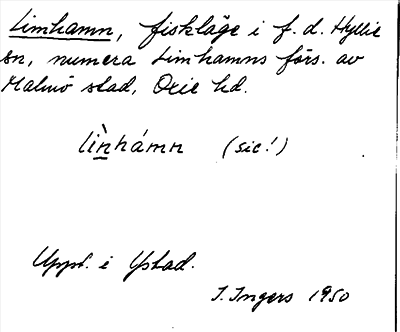 Limhamn, fiskläge i f.d. Hyllie
sn, numera Limhamns förs. av
Malmö stad, Oxie hd.
lìnhámn (sic!)
Uppt. i Ystad.
I. Ingers 1950